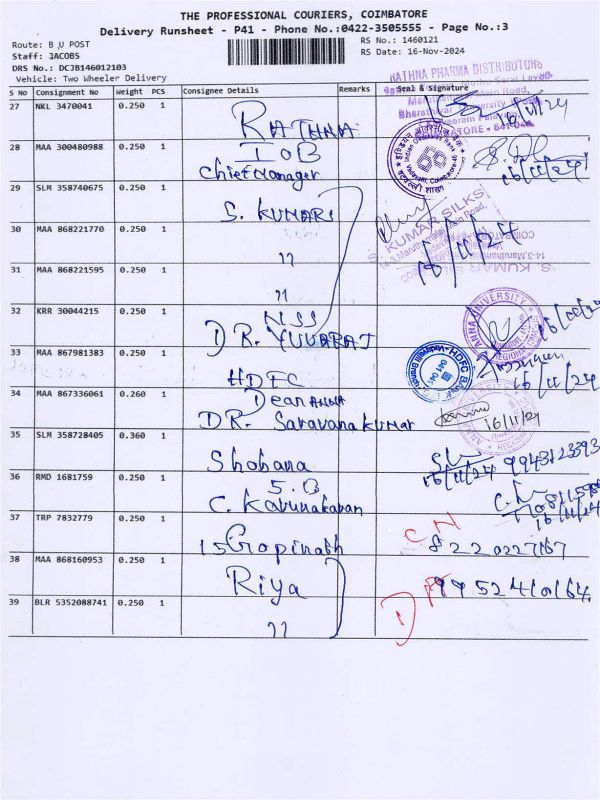 THE PROFESSIONAL COURIERS, COIMBATORE
Delivery Runsheet - P41 - Phone No.:0422-3505555 - Page No.:3
Route: B U POST
RS No.: 1460121
Staff: JACOBS
RS Date: 16-Nov-2024
DRS No.: DCJB146012103
Vehicle: Two Wheeler Delivery
S No Consignment No Weight PCS Consignee Details Remarks Seal & Signature
RATHNA PHARMA DISTRIBUTORS
27 NKL 3470041 0.250 1 RATHNA 16/11/24
28 MAA 300480988 0.250 1 IOB
Chief Manager 16/11/24
29 SLM 358740675 0.250 1 S. KUMARI
S. KUMAR SILKS
30 MAA 868221770 0.250 1 11 16/11/24
31 MAA 868221595 0.250 1 11
32 KRR 30044215 0.250 1 NSS
DR. YUVARAJ
ANNA UNIVERSITY
33 MAA 867981383 0.250 1 HDFC 16/11/24
HDFC BANK
34 MAA 867336061 0.260 1 Dean ANNA
DR. Saravana kumar 16/11/24
35 SLM 358728405 0.360 1 Shobana 16/11/24 9943123393
36 RMD 1681759 0.250 1 S.B
C. Karunakaran 16/11/24
37 TRP 7832779 0.250 1 15 Gopinath CN 8220227167
38 MAA 868160953 0.250 1 Riya 9952410164
39 BLR 5352088741 0.250 1 11